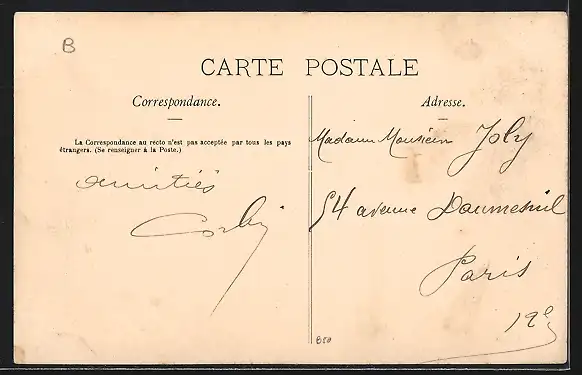 B
CARTE POSTALE
Correspondance.
La Correspondance au recto n'est pas acceptée par tous les pays
étrangers. (Se renseigner à la Poste.)
amitiés
Adresse.
Madame Monsieur Joly
54 avenue Daumesnil
Paris
12e